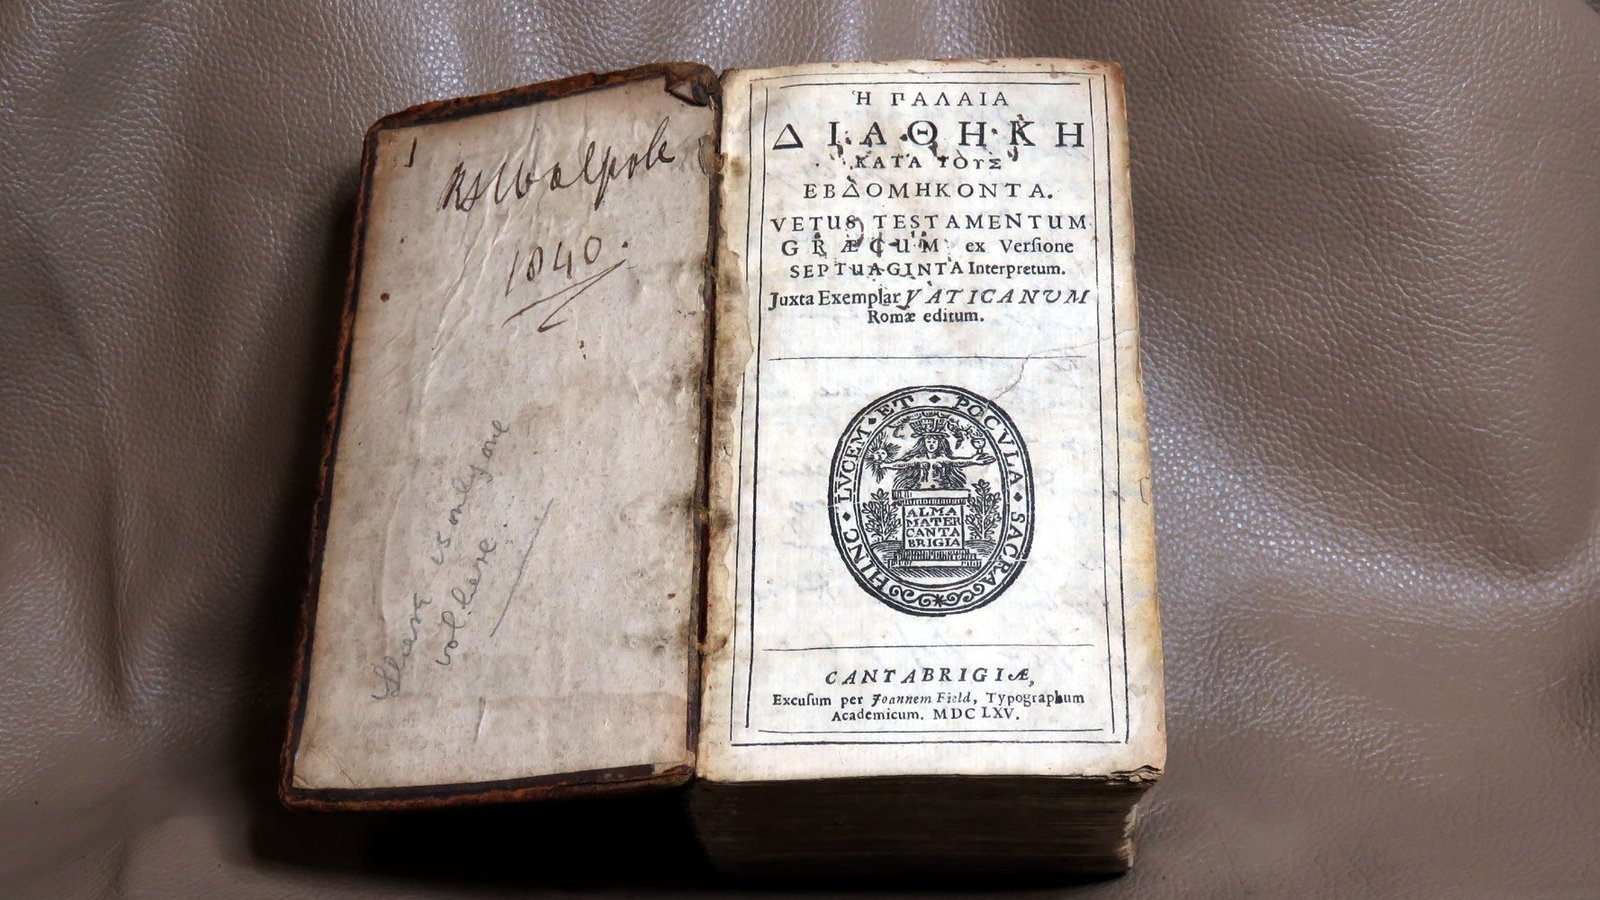 RSWalpole
1840.
There is only one
vol. here.
Ἡ ΠΑΛΑΙΑ
ΔΙΑΘΗΚΗ
ΚΑΤΑ ΤΟΥΣ
ΕΒΔΟΜΗΚΟΝΤΑ.
VETUS TESTAMENTUM
GRÆCUM ex Verſione
SEPTUAGINTA Interpretum.
Juxta Exemplar VATICANUM
Romæ editum.
HINC • LVCEM • ET • POCVLA • SACRA
ALMA
MATER
CANTA
BRIGIA
CANTABRIGIÆ,
Excuſum per Joannem Field, Typographum
Academicum. MDCLXV.